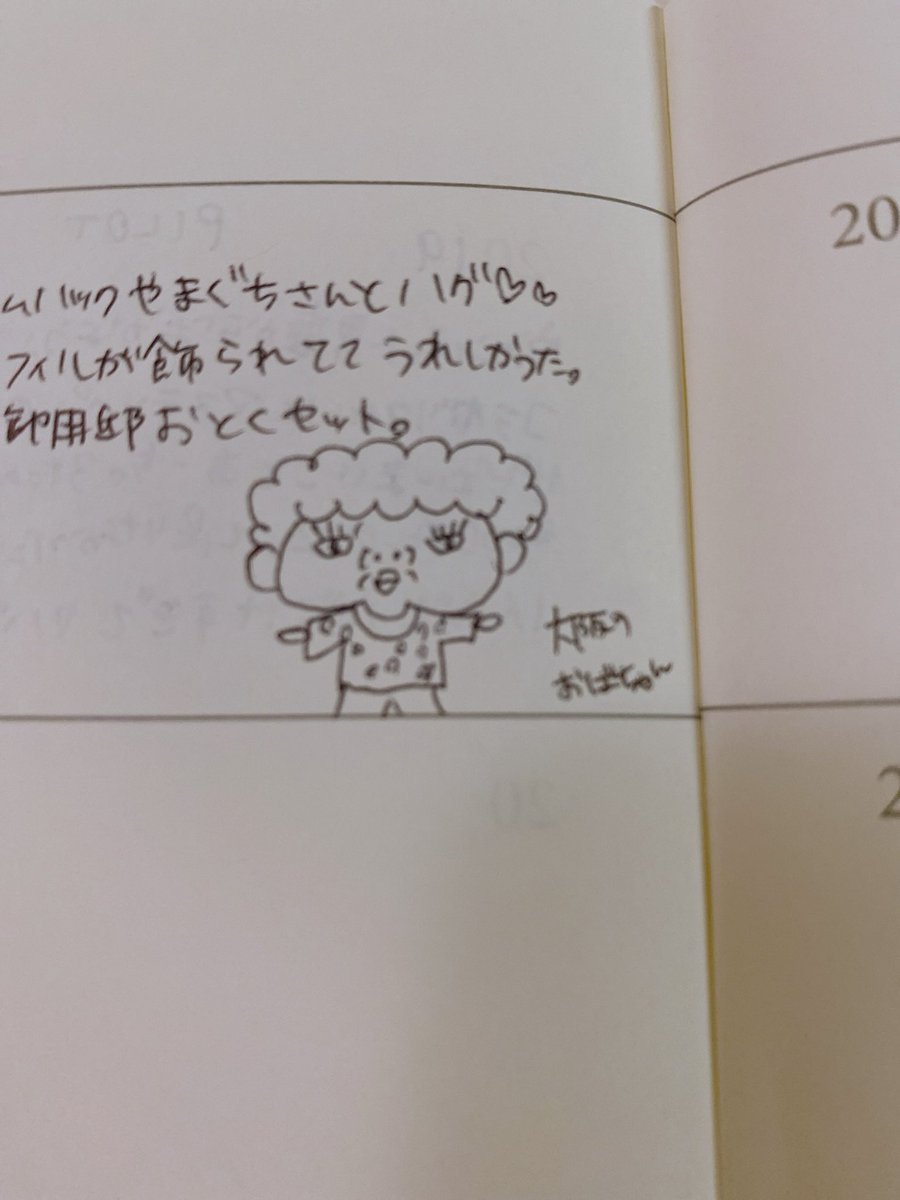 ムバックやまぐちさんとハグ♡♡
フィルが飾られててうれしかった。
御用邸おとくセット。
大阪の
おばちゃん
20
2